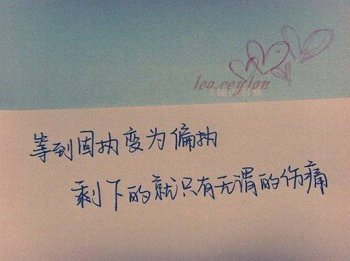 leo.ceylan
等到固执变为偏执
剩下的就只有无谓的伤痛